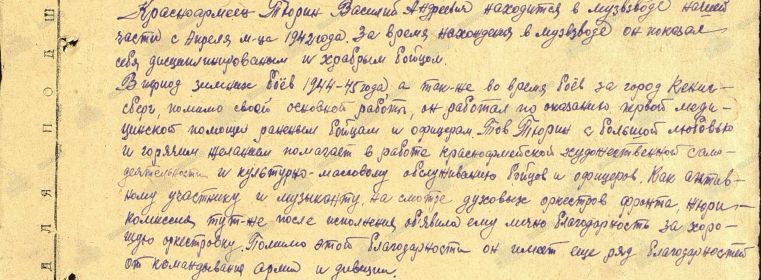 Красноармеец Тюрин Василий Андреевич находится в музвзводе нашей
части с Апреля м-ца 1942 года. За время нахождения в музвзводе он показал
себя дисциплинированым и храбрым бойцом.
В период зимних боёв 1944-45 года, а так-же во время боёв за город Кениг-
сберг, помимо своей основной работы, он работал по оказанию первой меди-
цинской помощи раненым бойцам и офицерам. Тов Тюрин с большой любовью
и горячим желанием помогает в работе красноармейской художественной само-
деятельности и культурно-массовому обслуживанию бойцов и офицеров. Как актив-
ному участнику и музыканту, на смотре духовых оркестров фронта, жюри-
комиссия, тут-же после исполнения объявила ему лично благодарность за хоро-
шую оркестровку. Помимо этой благодарности он имеет еще ряд благодарностей
от командования армии и дивизии.
ДЛЯ ПОДШ